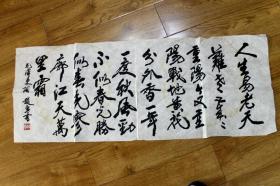 人生易老天
難老歲々
重陽今又重
陽戰地黃花
分外香一年
一度秋風勁
不似春光勝
似春光寥
廓江天萬
里霜
毛澤東詞
書